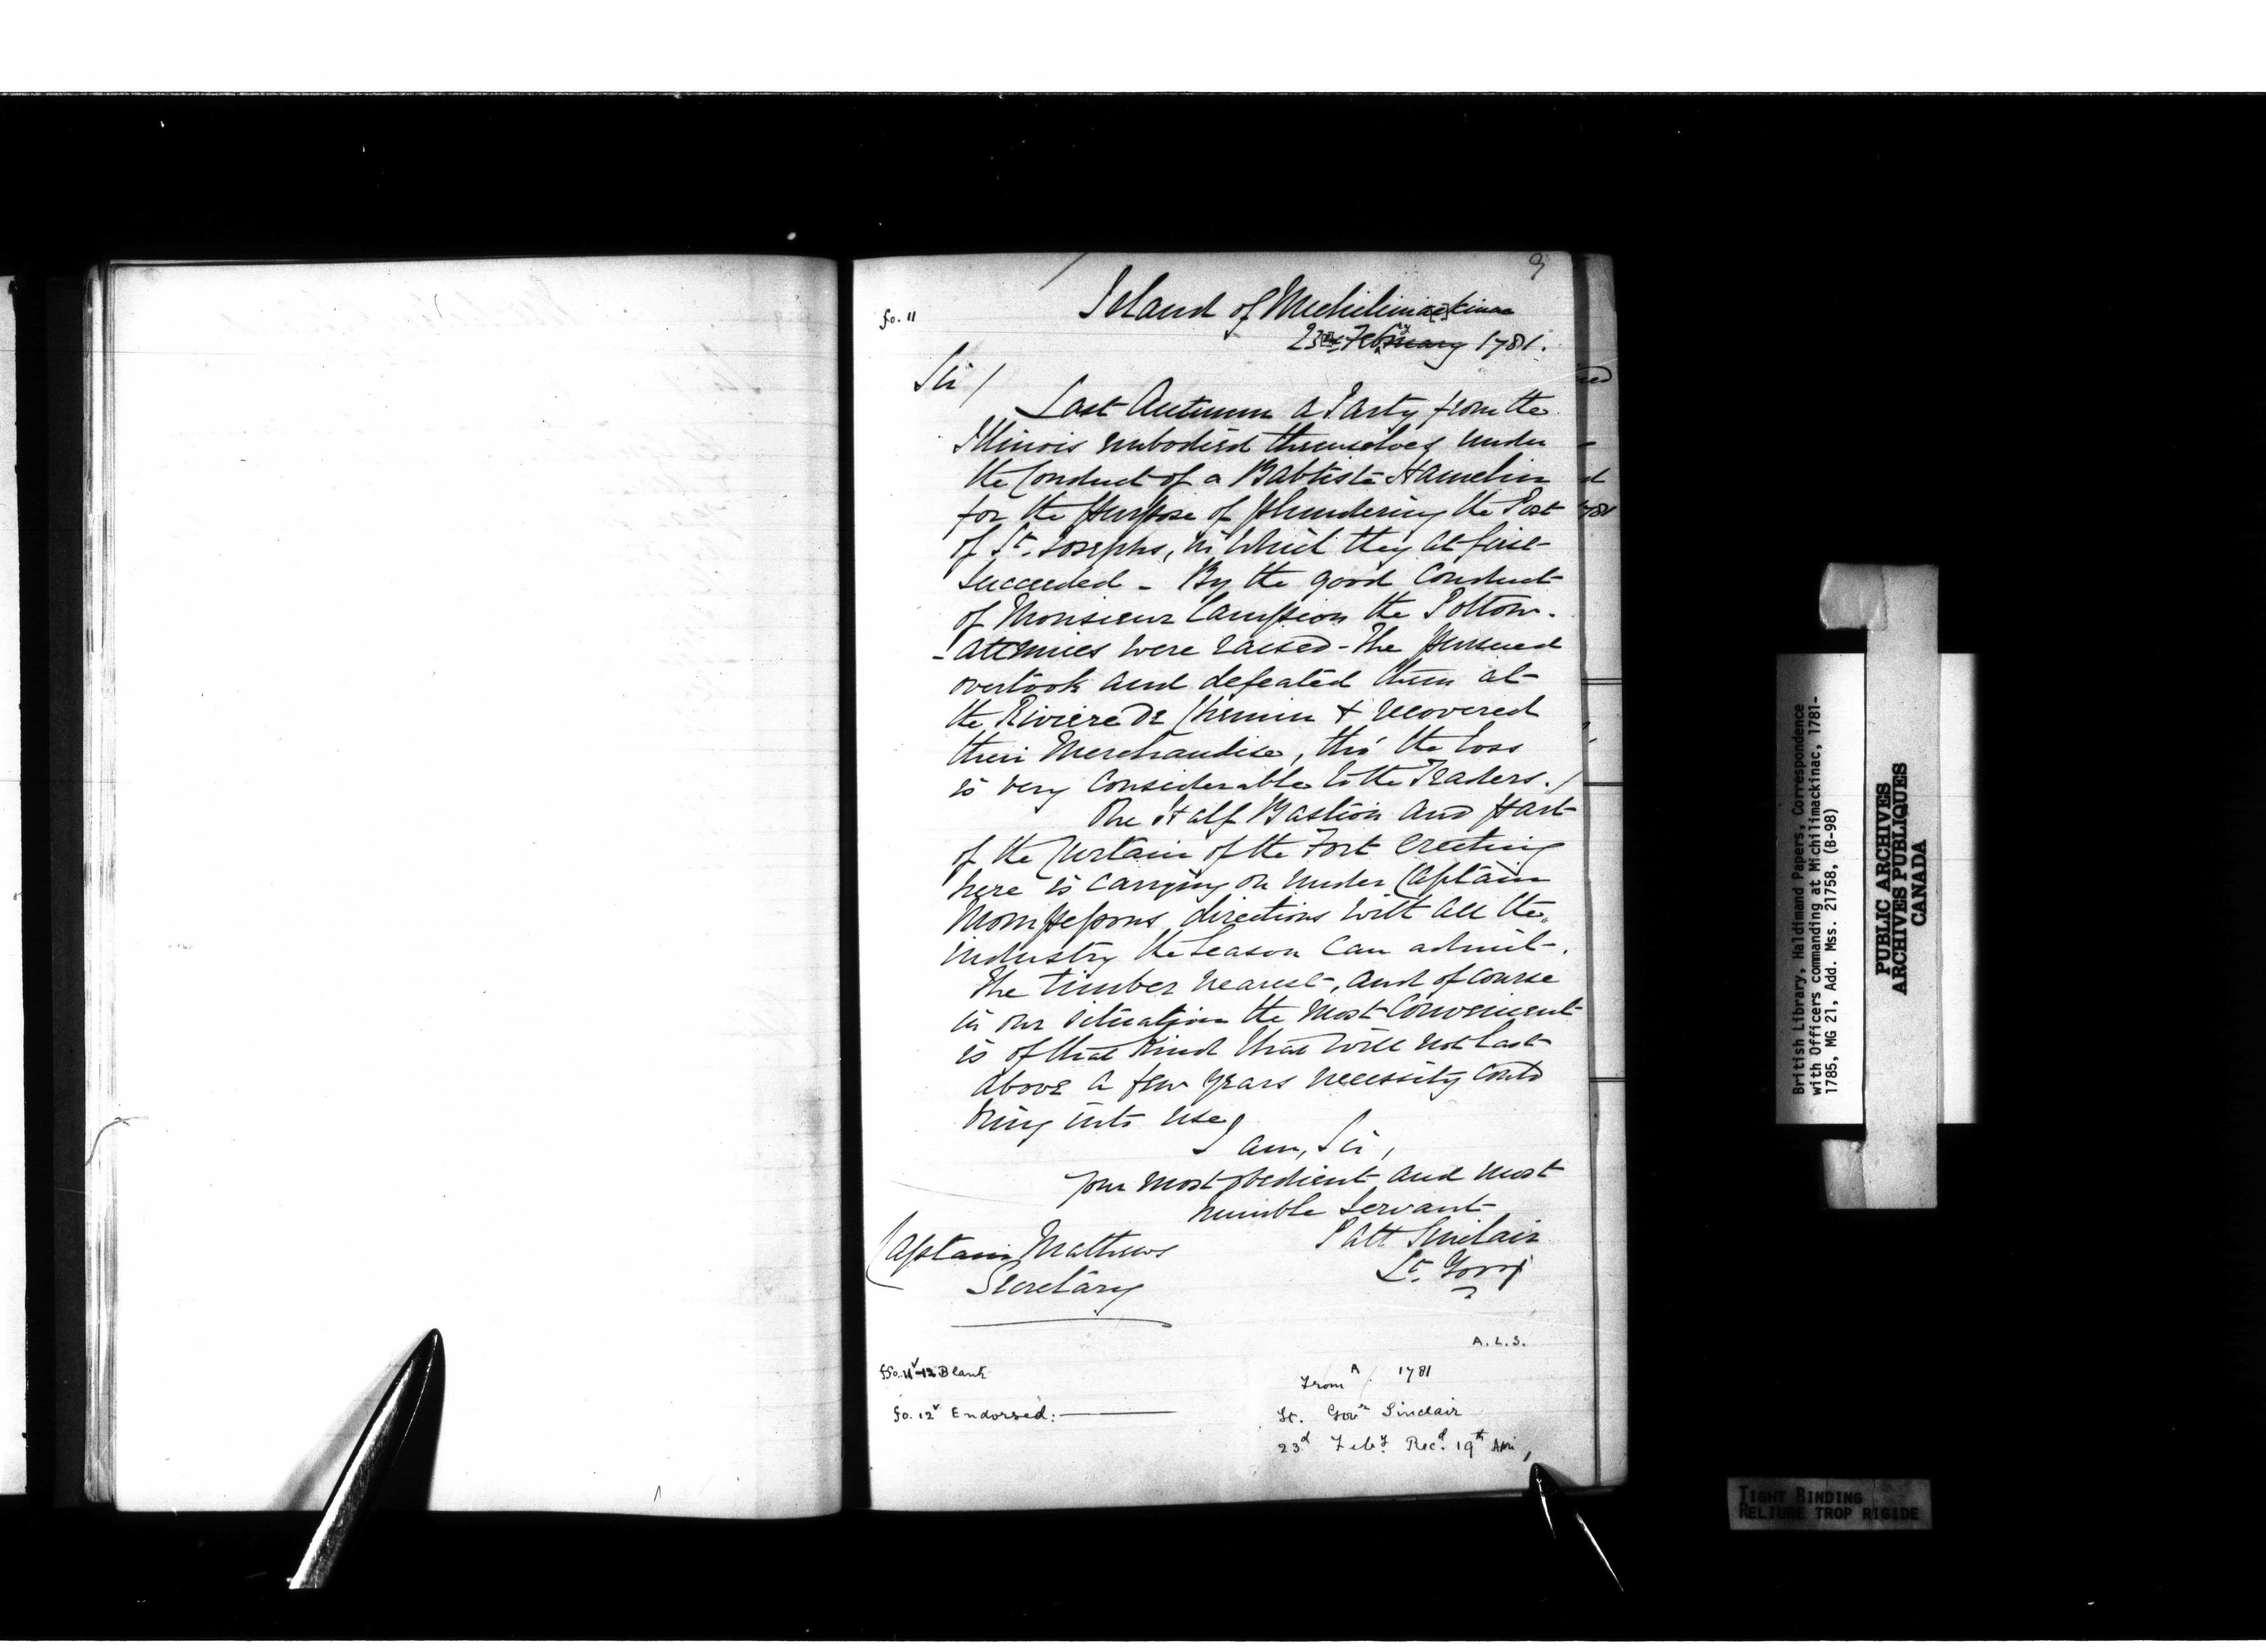 9
fo. 11
Island of Michilima[c]kinac
23rd Febry 1781.
Sir/
Last Autumn a Party from the
Illinois embodied themselves under
the Conduct of a Babtiste Hamelin
for the purpose of plundering the Post
of St. Josephs, in which they at first
succeeded - By the good Conduct
of Monsieur Campion the Pottow-
-attemies were raised - The pursued
overtook and defeated them at
the Riviere De Chemin & recovered
their Merchandise, tho' the loss
is very Considerable to the Traders./
One Half Bastion and part
of the Curtain of the Fort erecting
here is carrying on under Captain
Mompessons directions with all the
industry the Season can admit.
The timber nearest, and of course
in our situation the most Convenient
is of that kind that will not last
above a few years necessity could
bring into use
I am, Sir,
your most obedient and most
humble servant
Patt Sinclair
Lt. Govr
Captain Mathews
Secretary
A.L.S.
ffo. 11v-12 Blank
fo. 12v Endorsed:
From A/. 1781
Lt. Govr Sinclair
23d Feby. Recd. 19th Apri
ed
d
1781
British Library, Haldimand Papers, Correspondence
with Officers commanding at Michilimackinac, 1781-
1785, MG 21, Add. Mss. 21758, (B-98)
PUBLIC ARCHIVES
ARCHIVES PUBLIQUES
CANADA
TIGHT BINDING
RELIURE TROP RIGIDE